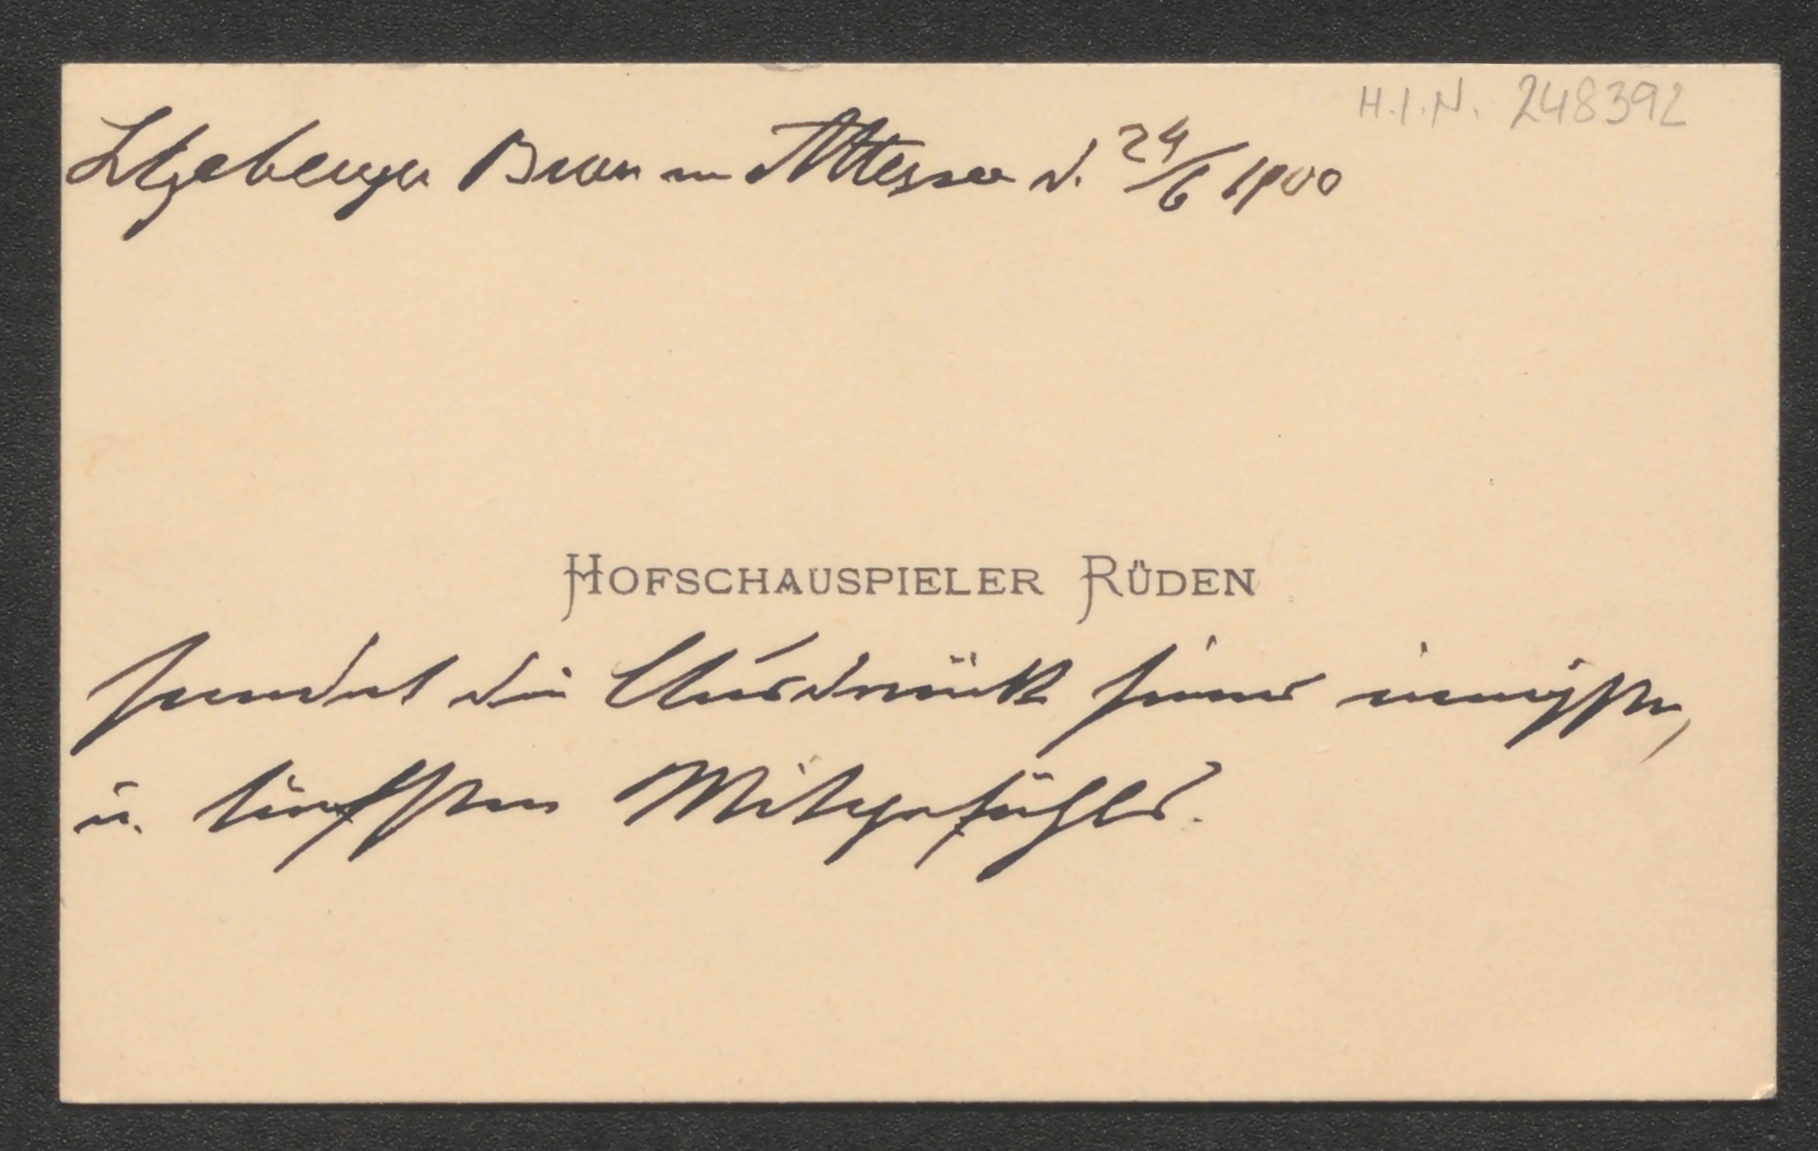 H.I.N. 248392
Litzlberger Bräu am Attersee d. 24/6 1900
HOFSCHAUSPIELER RÜDEN
sendet den Ausdruck seines innigsten,
u. tiefsten Mitgefühls.